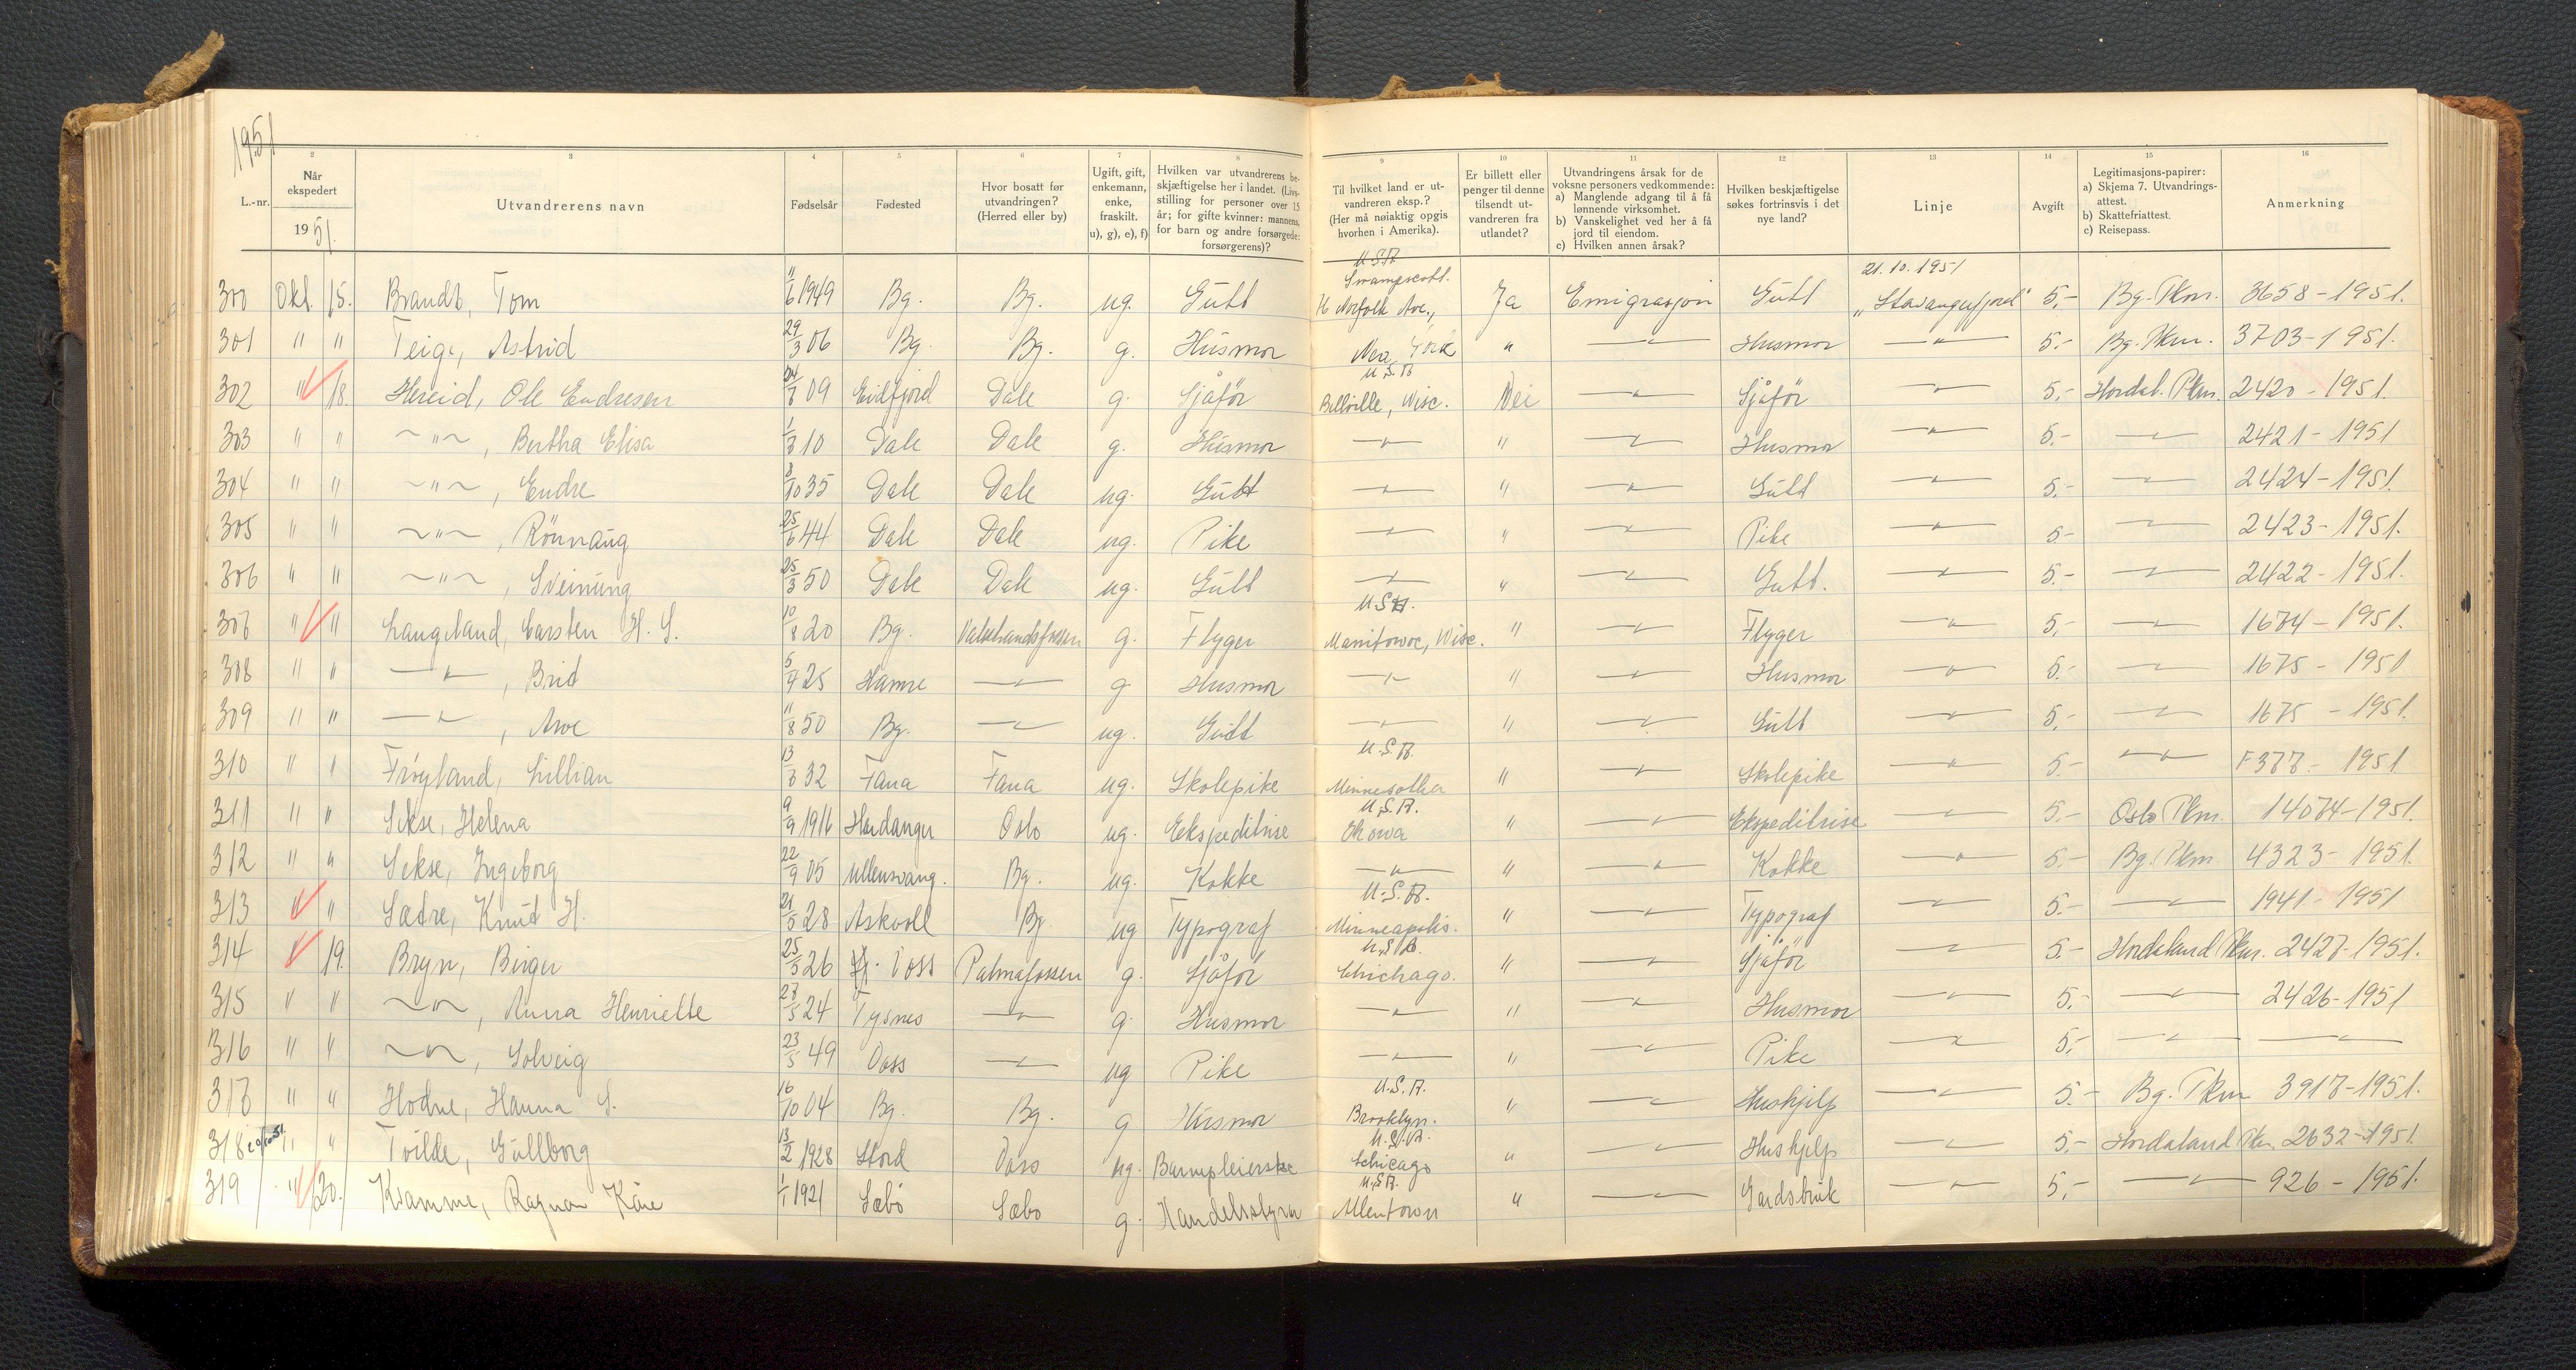 1951
2 3 4 5 6 7 8 9 10 11 12 13 14 15 16
L.-nr. | Når ekspedert 1951. | Utvandrerens navn | Fødselsår | Fødested | Hvor bosatt før utvandringen? (Herred eller by) | Ugift, gift, enkemann, enke, fraskilt. u), g), e), f) | Hvilken var utvandrerens beskjæftigelse her i landet. (Livsstilling for personer over 15 år; for gifte kvinner: mannens, for barn og andre forsørgede: forsørgerens)? | Til hvilket land er utvandreren eksp.? (Her må nøiaktig opgis hvorhen i Amerika). | Er billett eller penger til denne tilsendt utvandreren fra utlandet? | Utvandringens årsak for de voksne personers vedkommende: a) Manglende adgang til å få lønnende virksomhet. b) Vanskelighet ved her å få jord til eiendom. c) Hvilken annen årsak? | Hvilken beskjæftigelse søkes fortrinsvis i det nye land? | Linje | Avgift | Legitimasjons-papirer: a) Skjema 7. Utvandringsattest. b) Skattefriattest. c) Reisepass. | Anmerkning
300 Okt. 15. Brandt, Tom 11/6 1949 Bg. Bg. ug. Gutt U.S.A. Swampscott. Norfolk Ave., Ja Emigrasjon Gutt 21.10.1951 "Stavangerfjord" 5,- Bg. Pkm. 3658-1951.
301 " " Teige, Astrid 29/3 06 Bg. Bg. g. Husmor New York " Husmor 5.- Bg. Pkm. 3703-1951.
302 " 18. Hereid, Ole Endresen 09 Eidfjord Dale g. Sjåför U.S.A. Bellville, Wisc. Nei Sjåför 5,- Hordal. Pkm. 2420-1951.
303 " " ~"~, Bertha Elisa 10 Dale Dale g. Husmor " Husmor 5.- 2421-1951
304 " " ~"~, Endre 35 Dale Dale ug. Gutt " Gutt 5.- 2424-1951.
305 " " ~"~, Rönnaug 25/6 44 Dale Dale ug. Pike " Pike 5- 2423-1951.
306 " " ~"~, Sveinung 25/3 50 Dale Dale ug. Gutt " Gutt. 5.- 2422-1951.
307 " " Langeland, Carsten H. S. 10/8 20 Bg. g. Flyger U.S.A. Manitowoc, Wisc. " Flyger 5,- 1674-1951.
308 " " —"—, Brid 25 Hamre —"— g. Husmor " Husmor 5.- 1675-1951
309 " " —"—, Arve 11/8 50 Bg. —"— ug. Gutt " Gutt 5.- 1675-1951.
310 " " Fröyland, Lillian 32 Fana Fana ug. Skolepike U.S.A. Minnesotha " Skolepike 5.- F377-1951
311 " " Sekse, Helena 9/9 1916 Hardanger Oslo ug. Eekspeditrise U.S.A. Ihowa " Ekspeditrise 5.- Oslo Pkm. 14074-1951.
312 " " Sekse, Ingeborg 22/9 05 Ullensvang. Bg. ug. Kokke " Kokke 5.- Bg. Pkm. 4323-1951.
313 " " Sædre, Knud H. 21/5 28 Askvoll Bg. ug Typograf U.S.A. Minneapolis. " Typograf 5.- 1941-1951
314 " 19. Bryn, Birger 25/5 26 Voss Palmafossen g. Sjåför U.S.A. Chichago. " Sjåför 5.- Hordaland Pkm. 2427-1951.
315 " " ~"~, Anna Henriette 27/5 24 Tysnes —"— g. Husmor " Husmor 5.- 2426-1951
316 " " ~"~, Solveig 23/5 49 Voss —"— ug Pike " Pike 5,-
317 " " Hodne, Hanna S. 16/10 04 Bg. Bg. g Husmor U.S.A. Brooklyn. " Hushjelp 5.- Bg. Pkm 3917-1951.
318 " " Tvilde, Gullborg 13/2 1928 Stord Voss ug. Barnepleierske U.S.A. Schicago " Hushjelp 5,- Hordaland Pkm. 2632-1951.
319 " 20. Kvamme, Ragnar Kåre 1/1 1921 Sæbö Sæbö g. Handelsstyrer U.S.A. Allentown " Gardsbruk 5,- 926-1951.